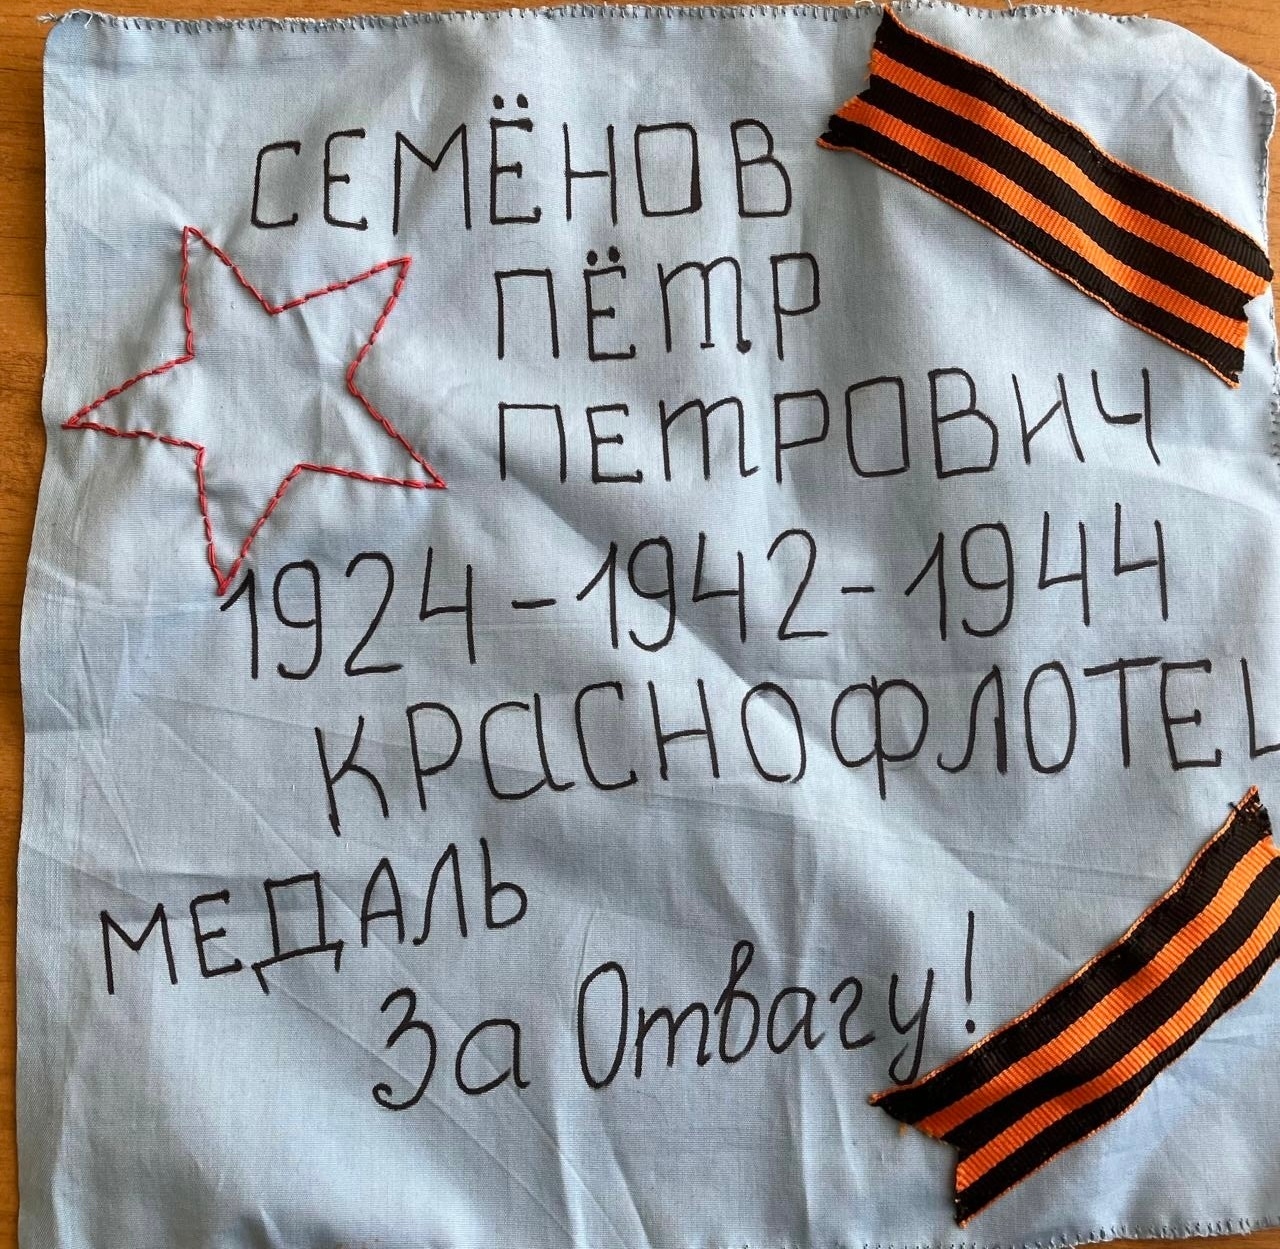 СЕМЁНОВ
ПЁТР
ПЕТРОВИЧ
1924-1942-1944
КРАСНОФЛОТЕЦ
МЕДАЛЬ
За Отвагу!